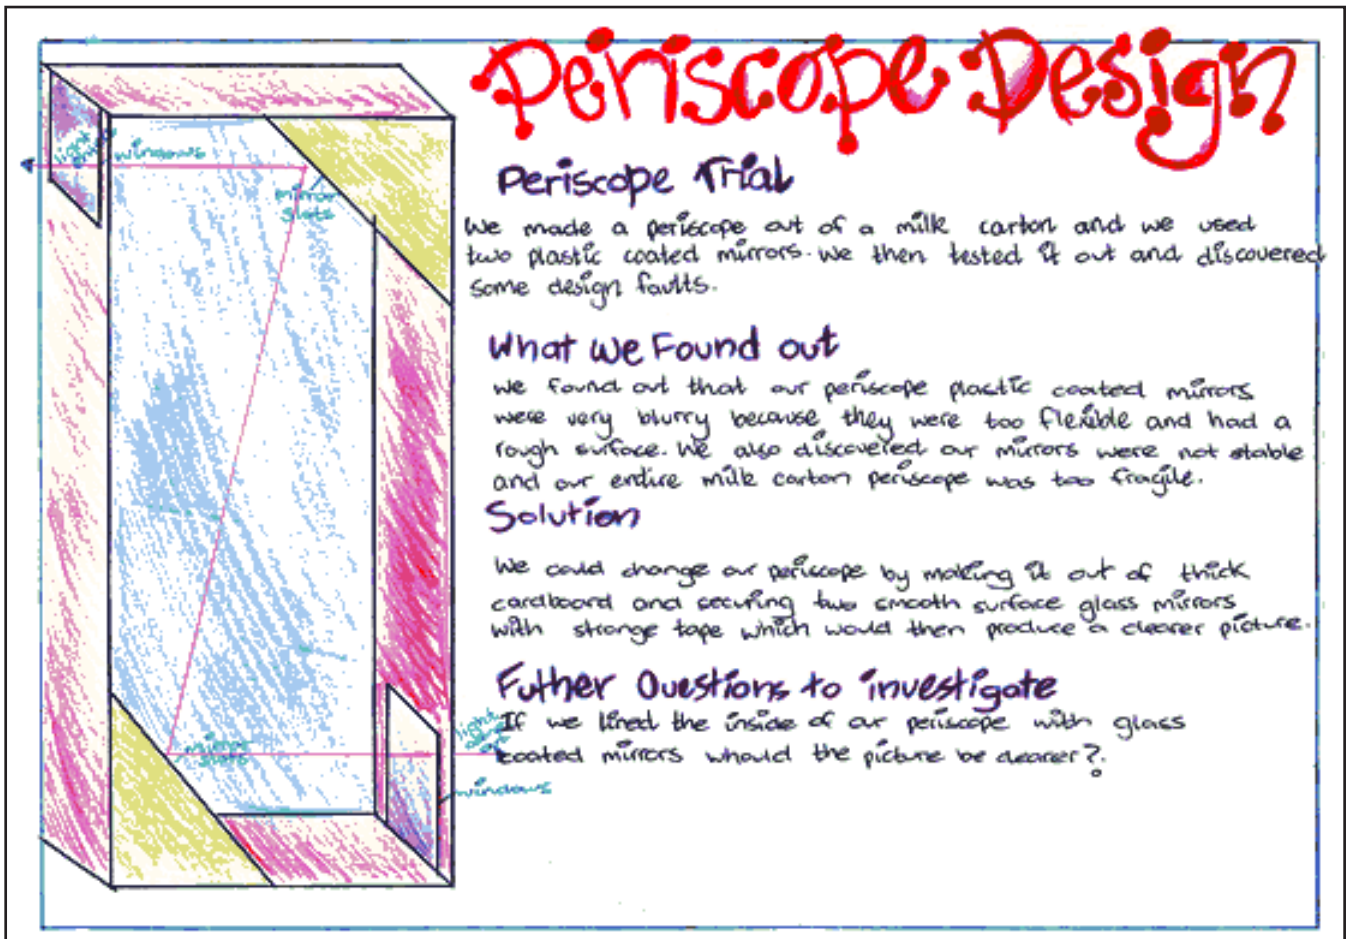 Periscope Design
Periscope Trial
We made a periscope out of a milk carton and we used
two plastic coated mirrors. We then tested it out and discovered
some design faults.
What We Found out
We found out that our periscope plastic coated mirrors
were very blurry because they were too flexible and had a
rough surface. We also discovered our mirrors were not stable
and our entire milk carton periscope was too fragile.
Solution
We could change our periscope by making it out of thick
cardboard and securing two smooth surface glass mirrors
with stronge tape which would then produce a clearer picture.
Futher Questions to investigate
If we lined the inside of our periscope with glass
coated mirrors whould the picture be clearer?
light
windows
mirror
slots
mirror
slots
light
windows